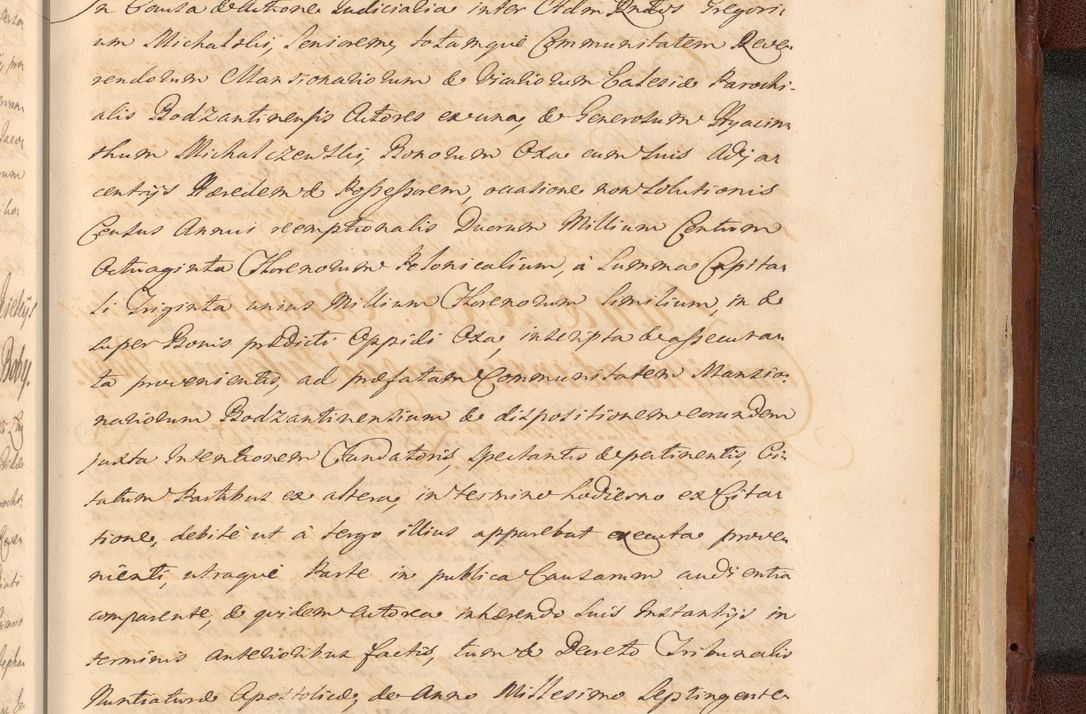 In Causa & actione Judiciali inter Adm Rndos Gregori
um Michalski, Seniorem, totamque Communitatem Reve
rendorum Mansionariorum & Vicariorum Ecclesiæ Parochi
alis Bodzantinensis Actores ex una, & Generosum Hyacin
thum Michalczewski, Bonorum Oxa cum suis Adja
centijs Hæredem & Possessorem, occasione non solutionis
Census Annui reemptionalis Duorum Millium Centum
Octuaginta Florenorum Polonicalium, à Summa Capita
li Triginta unius Millium Florenorum similium, in &
super Bonis prædicti Oppidi Oxa, inscripta & assecura
ta provenientis, ad præfatam Communitatem Mansio
nariorum Bodzantinensium & dispositionem eorundem
juxta Intentionem Fundatoris, spectantis & pertinentis, Ci
tatum Partibus ex altera, in termino hodierno ex Cita
tione, debitè ut à tergo illius apparebat executa prove
nienti, utraque Parte in publica Causarum audientia
comparente, & quidem Actorea inhærendo suis Instantijs in
terminis anterioribus factis, tum & Decreto Tribunalis
Nuntiaturæ Apostolicæ, de Anno Millesimo Septingente